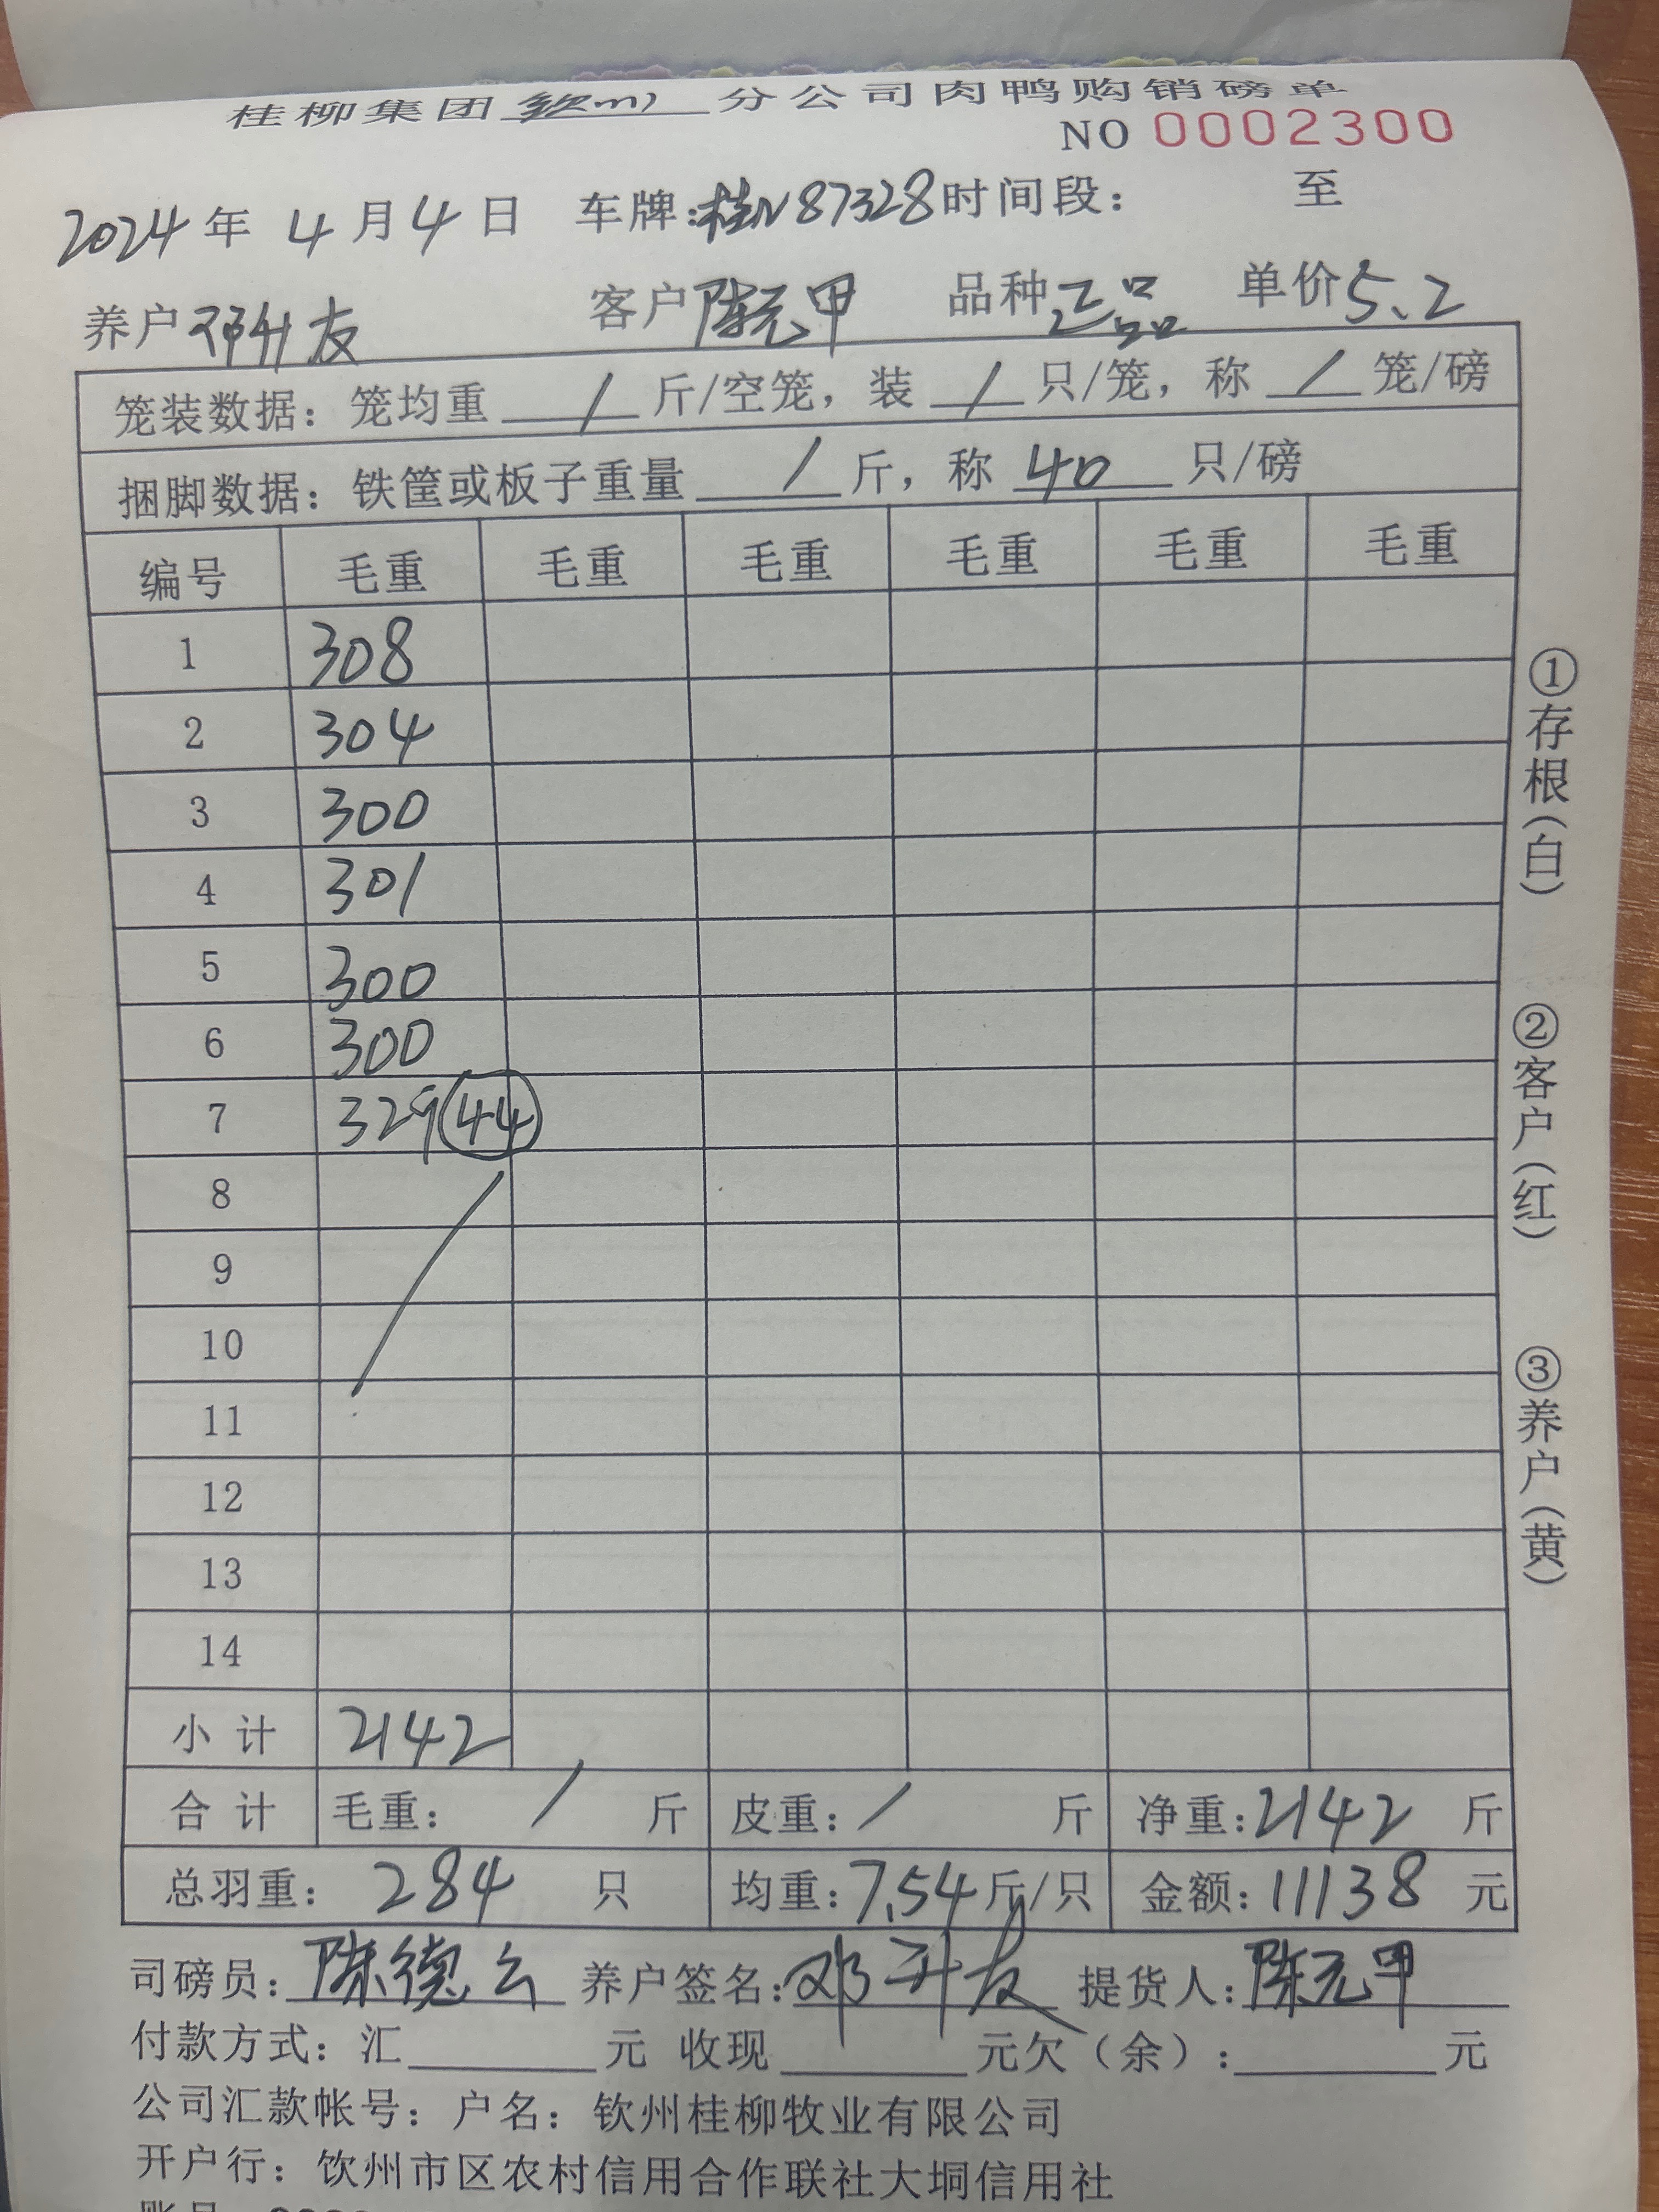 桂柳集团钦州分公司肉鸭购销磅单
NO 0002300
2024年 4月4日 车牌:桂N87328 时间段: 至
养户 邓升友 客户 陈元甲 品种 正品 单价 5.2
笼装数据: 笼均重 / 斤/空笼, 装 / 只/笼, 称 / 笼/磅
捆脚数据: 铁筐或板子重量 / 斤, 称 40 只/磅
编号 毛重 毛重 毛重 毛重 毛重 毛重
1 308
2 304
3 300
4 301
5 300
6 300
7 329 44
8
9
10
11
12
13
14
小计 2142
合计 毛重: / 斤 皮重: / 斤 净重: 2142 斤
总羽重: 284 只 均重: 7.54 斤/只 金额: 11138 元
司磅员: 陈德云 养户签名: 邓升友 提货人: 陈元甲
付款方式: 汇 元 收现 元欠(余): 元
公司汇款帐号: 户名: 钦州桂柳牧业有限公司
开户行: 钦州市区农村信用合作联社大垌信用社
①存根(白)
②客户(红)
③养户(黄)